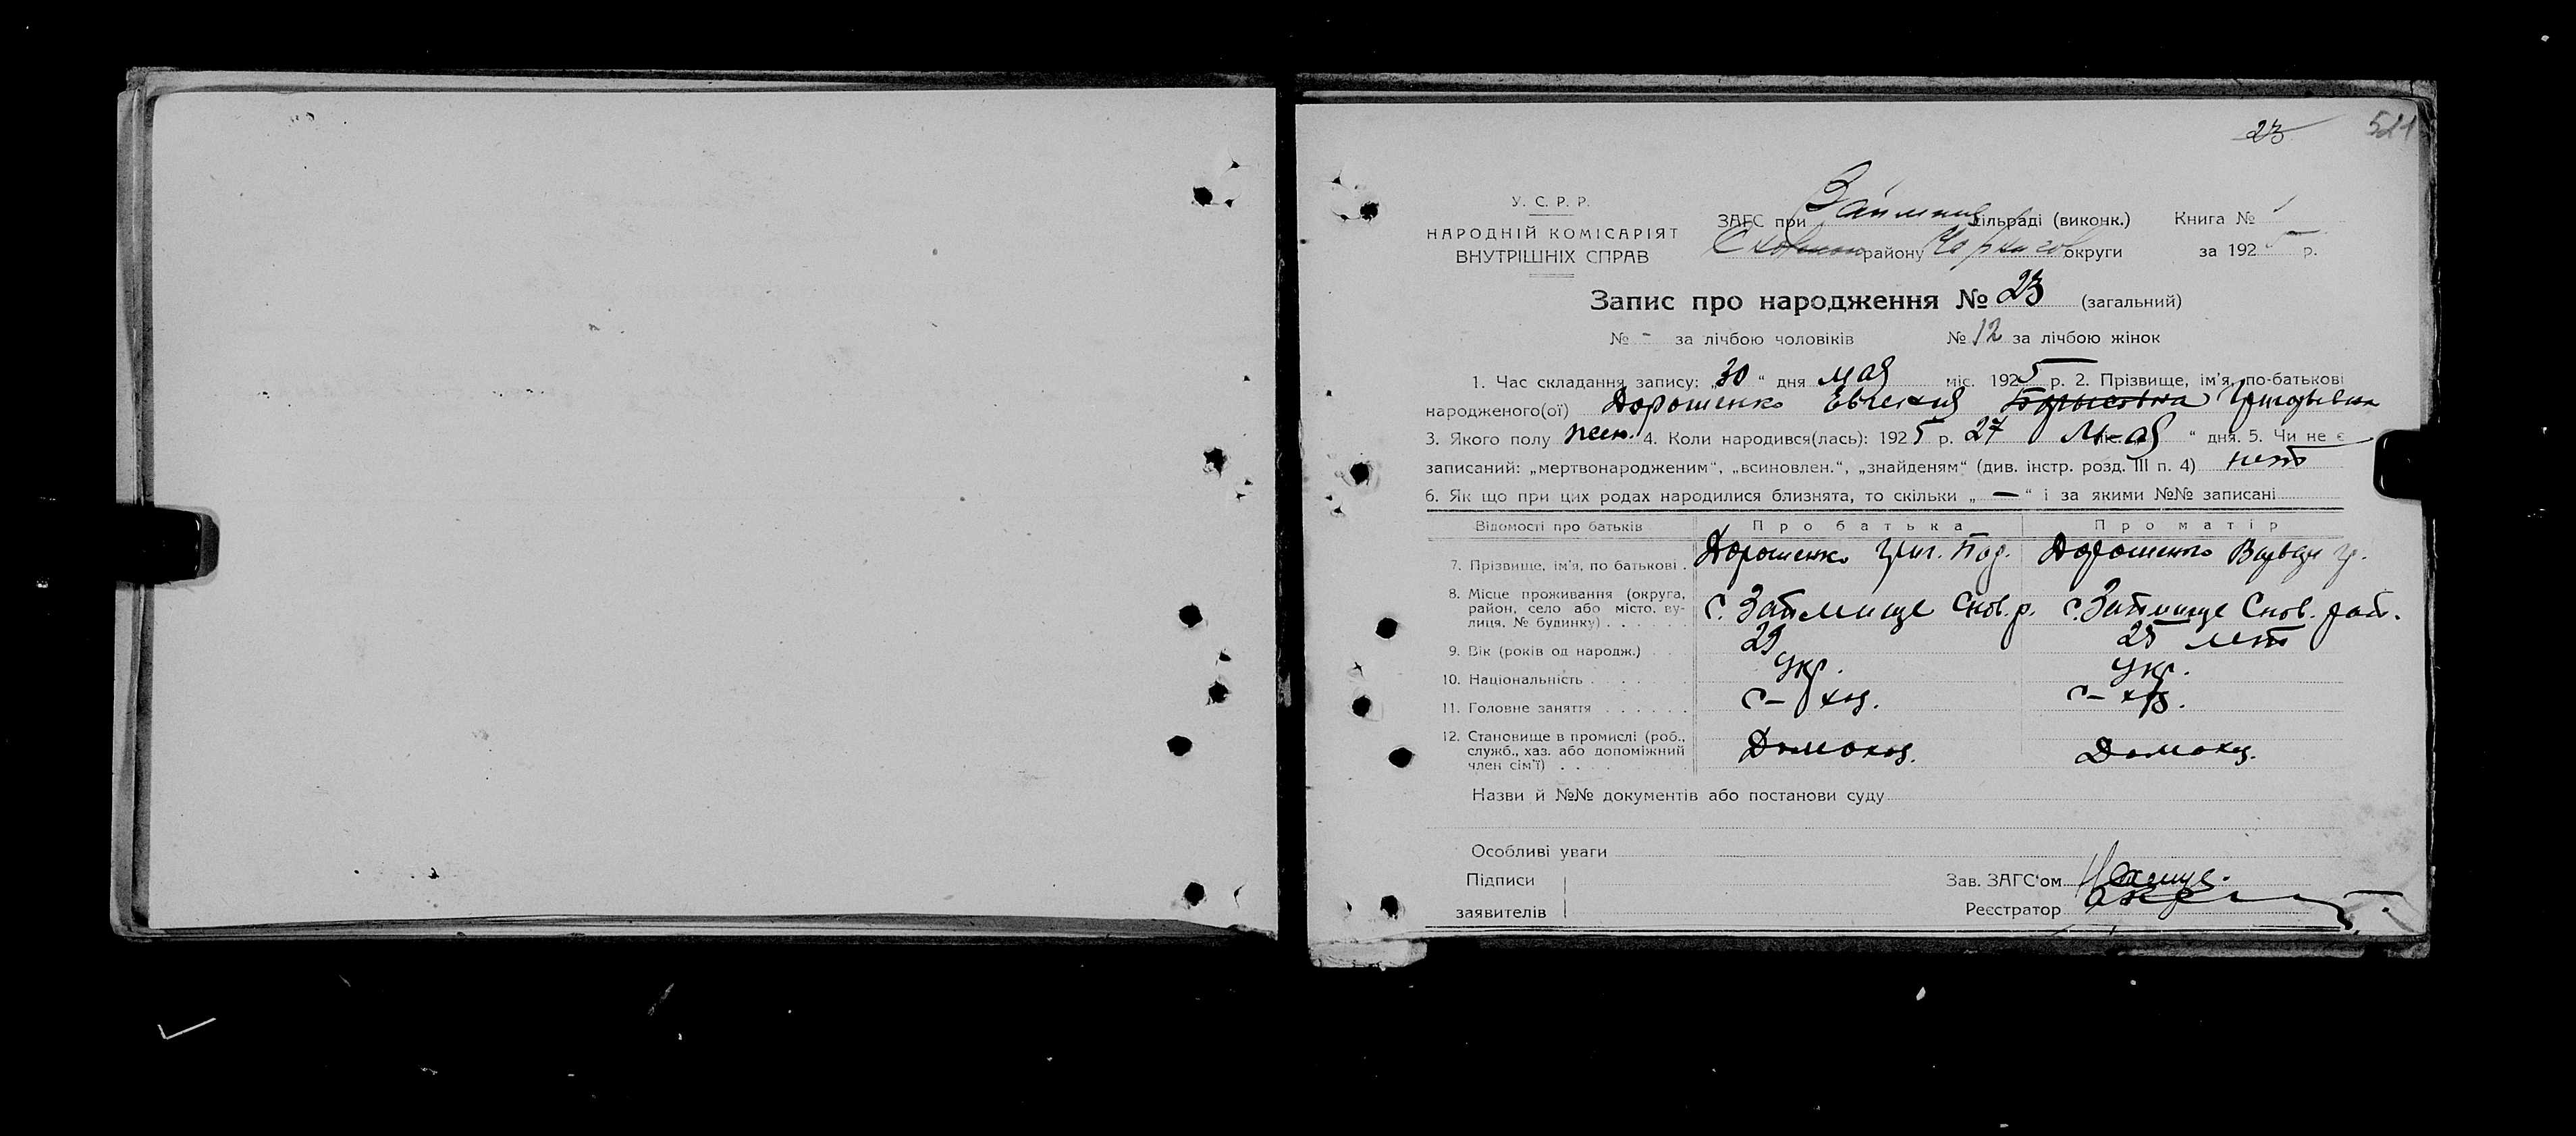 23 521
У. С. Р. Р.
НАРОДНІЙ КОМІСАРІЯТ
ВНУТРІШНІХ СПРАВ
ЗАГС при сільраді (виконк.) Книга №
району округи за 1925 р.
Запис про народження № 23 (загальний)
№ - за лічбою чоловіків № 12 за лічбою жінок
1. Час складання запису: „30“ дня мая міс. 1925 р. 2. Прізвище, ім'я, по-батькові
народженого(ої) Дорошенко Евгения Борысовна Григорьевна
3. Якого полу жен. 4. Коли народився(лась): 1925 р. 27 мая “ дня. 5. Чи не є
записаний: „мертвонародженим“, „всиновлен.“, „знайденям“ (див. інстр. розд. III п. 4) нет
6. Як що при цих родах народилися близнята, то скільки „ — “ і за якими №№ записані
Відомости про батьків Про батька Про матір
7. Прізвище, ім'я, по батькові . Дорошенко Григ. Дорошенко Варвара Гр.
8. Місце проживання (округа,
район, село або місто, ву-
лиця, № будинку) . . . . . . с. Займище Снов. р. с. Займище Снов. рай.
9. Вік (років од народж.) . . 29 25 лет
10. Національність . . . . . Укр. Укр.
11. Головне заняття . . . . . . с-хоз. с-хоз.
12. Становище в промислі (роб.,
служб., хаз. або допоміжний
член сім'ї) . . . Домохоз. Домохоз.
Назви й №№ документів або постанови суду
Особливі уваги
Підписи
заявителів
Зав. ЗАГС'ом
Реєстратор